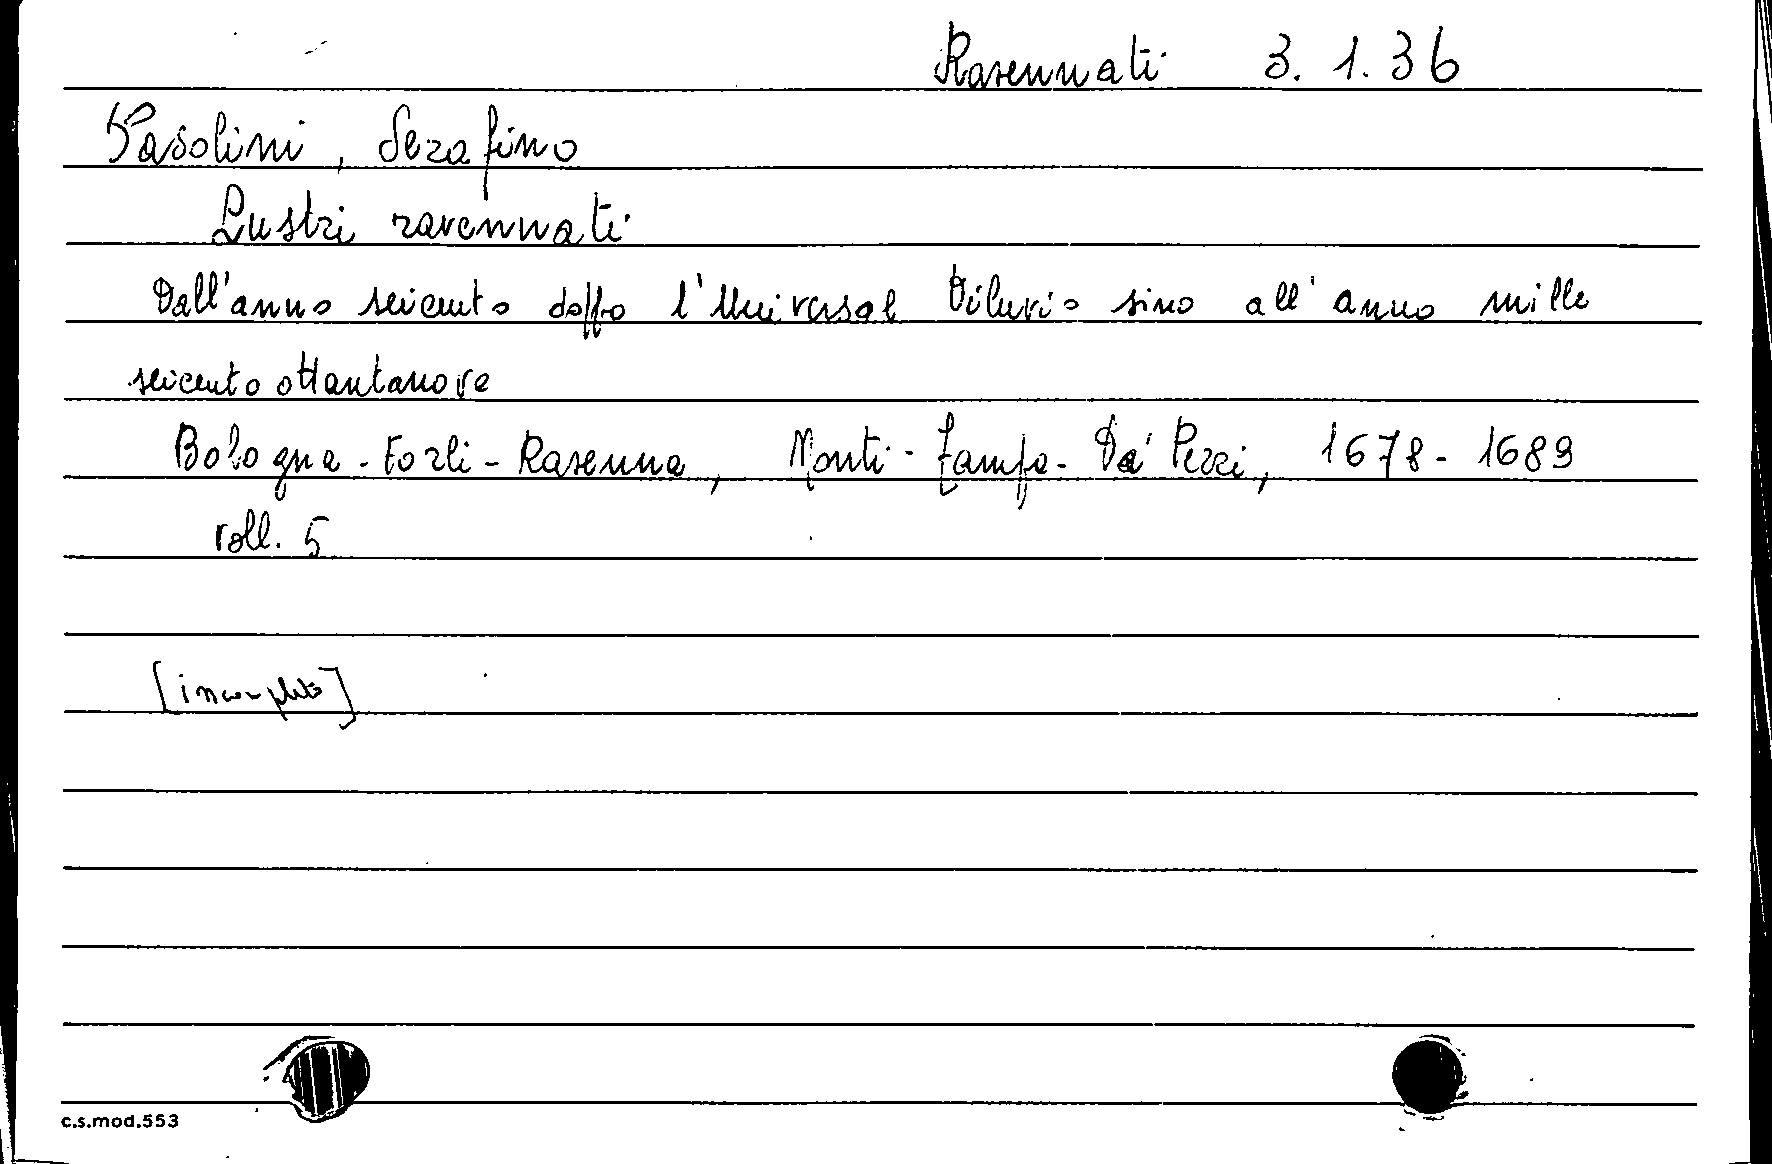 Ravennati 3.1.36
Pasolini, Serafino
Lustri ravennati
Dall'anno seicento doppo l'Universal Diluvio sino all'anno mille
seicento ottantanove
Bologna - Forlì - Ravenna, Monti - Zampa - Da' Pezzi, 1678 - 1689
voll. 5
[incompleto]
c.s.mod.553